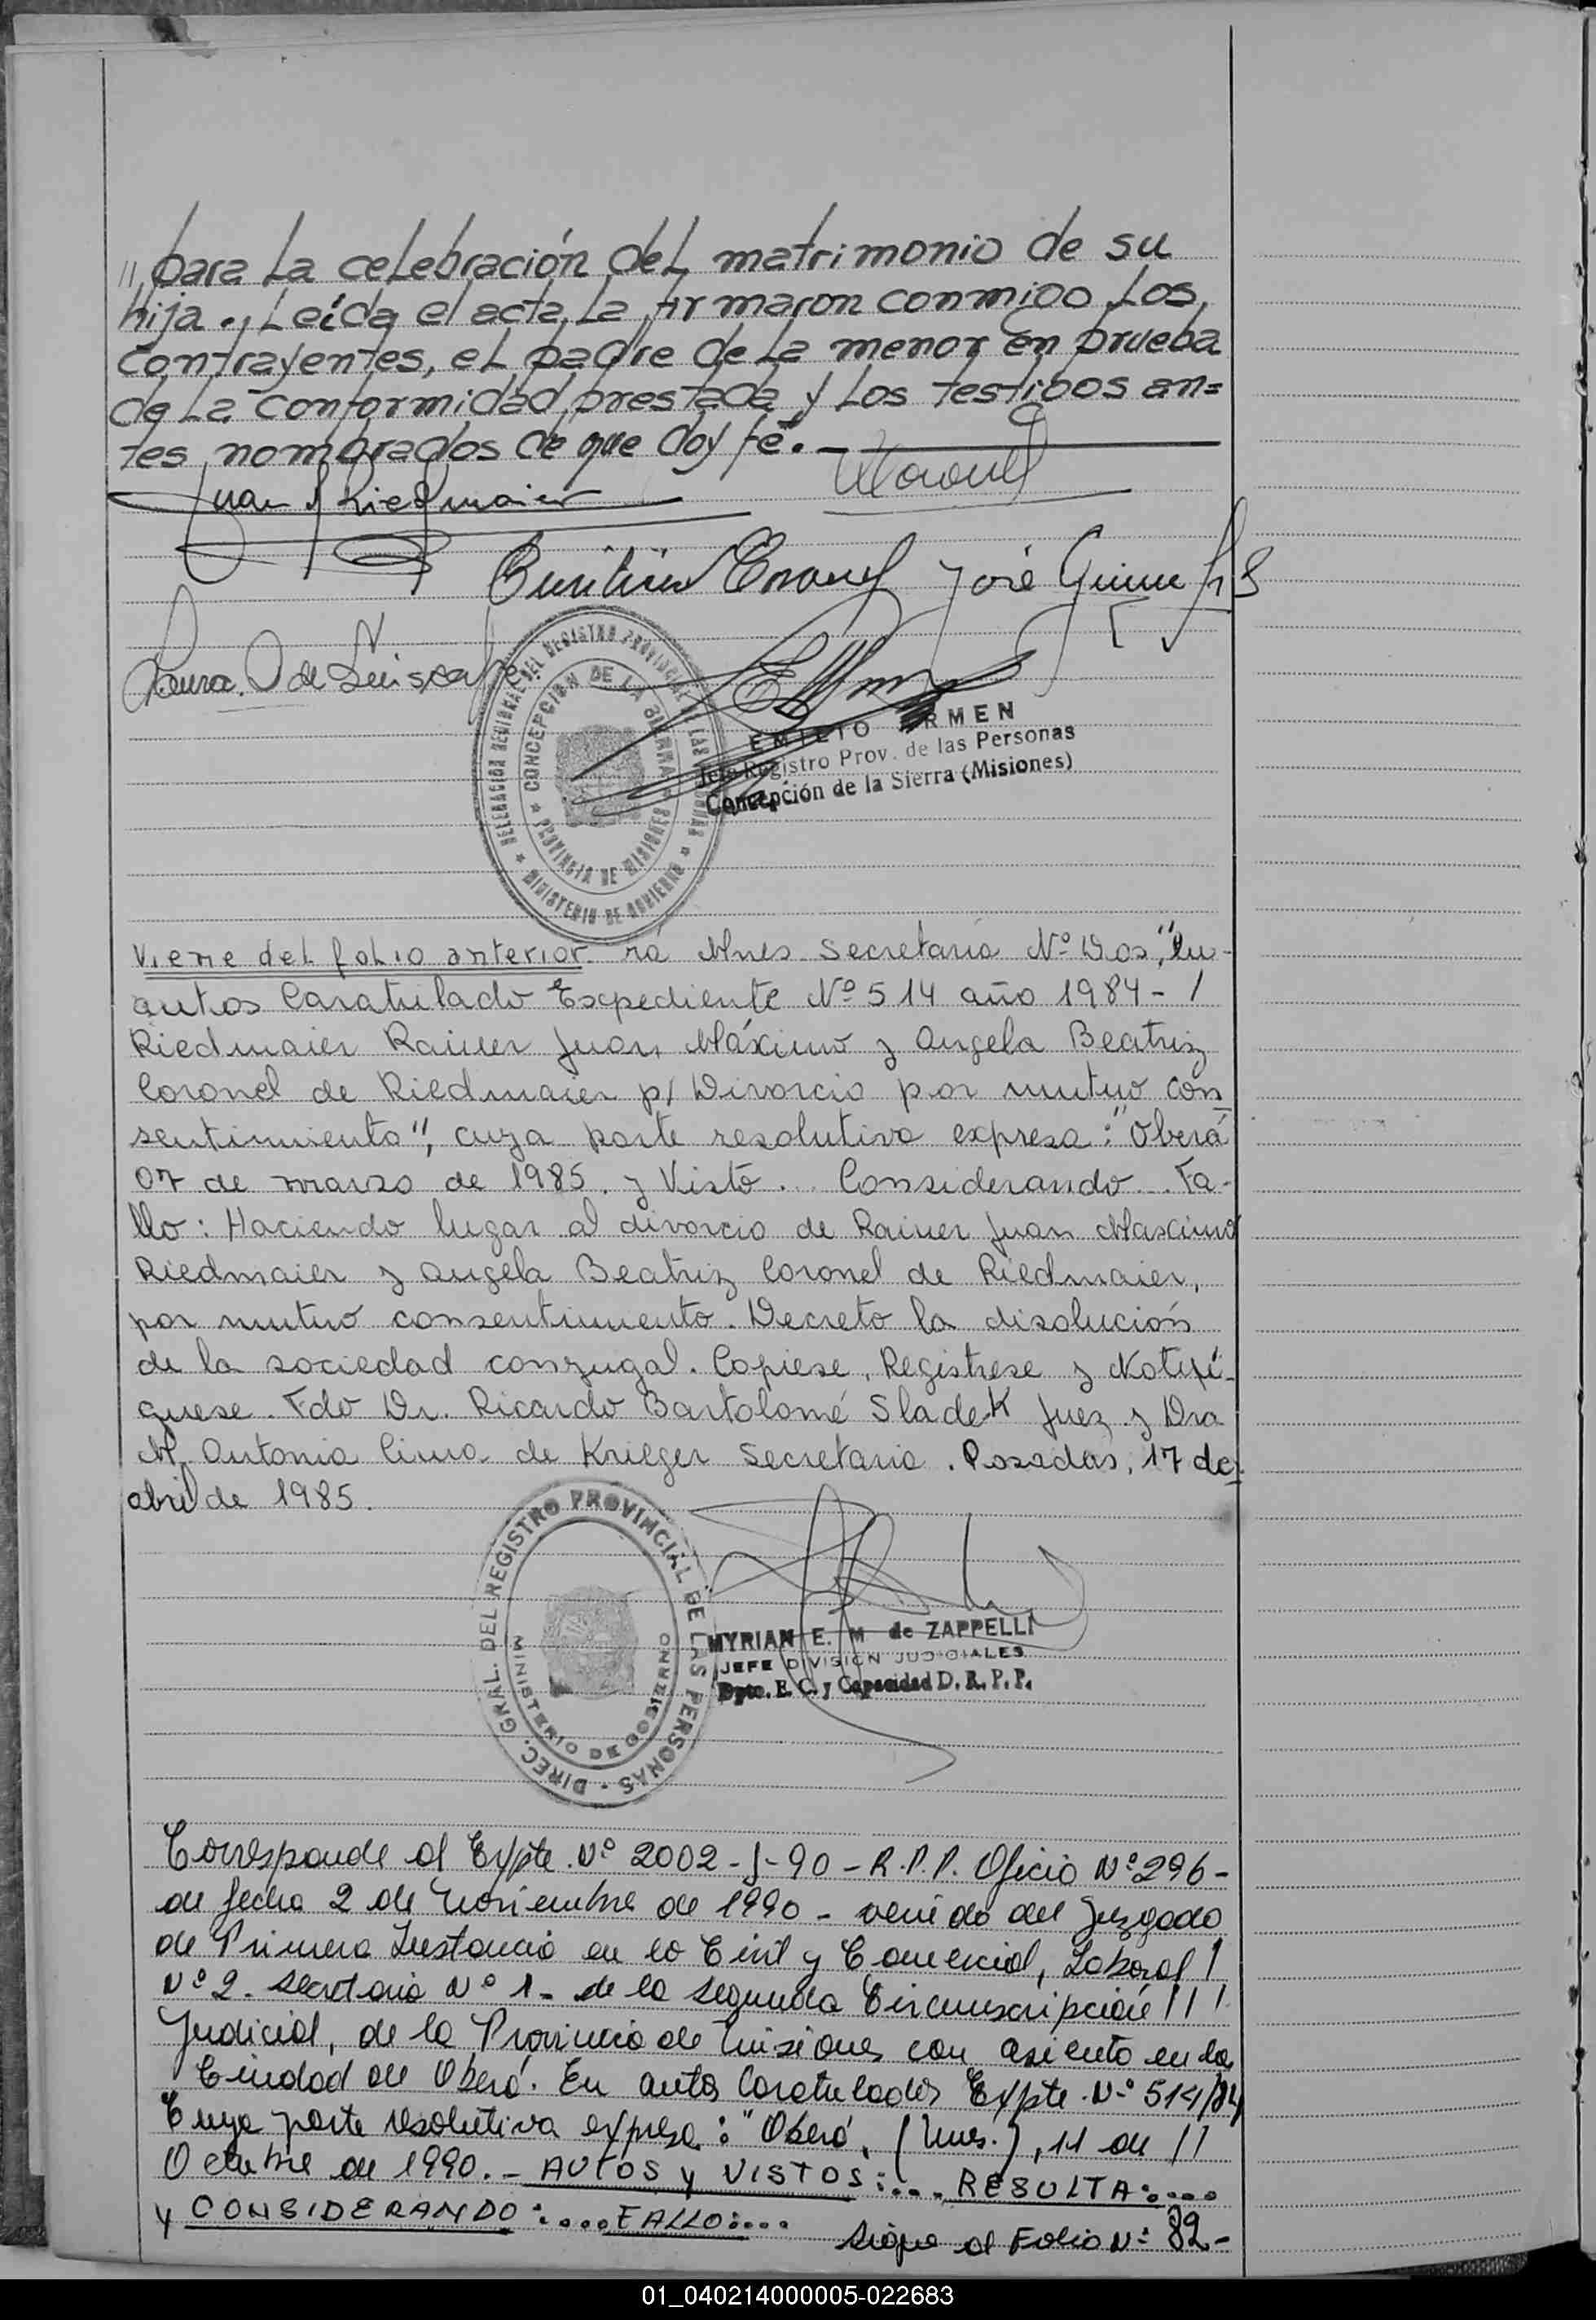 // para la celebración del matrimonio de su
hija. Leída el acta la firmaron conmigo los
contrayentes, el padre de la menor en prueba
de la conformidad prestada y los testigos an=
tes nombrados de que doy fé.-
Juan Riedmaier
José
Laura O de
DELEGACION REGIONAL DEL REGISTRO PROVINCIAL DE LAS PERSONAS
CONCEPCION DE LA SIERRA
PROVINCIA DE MISIONES
MINISTERIO DE GOBIERNO
EMILIO
Jefe Registro Prov. de las Personas
Concepción de la Sierra (Misiones)
Viene del folio anterior. rá Mnes. Secretaria Nº Dos, "En
autos Caratulado Expediente Nº 514 año 1984 - /
Riedmaier Rainer Juan Máximo y Angela Beatriz
Coronel de Riedmaier p/ Divorcio por mutuo con
sentimiento", cuya parte resolutiva expresa: "Oberá
07 de marzo de 1985. y Visto... Considerando... Fa-
llo: Haciendo lugar al divorcio de Rainer Juan Maximo
Riedmaier y Angela Beatriz Coronel de Riedmaier,
por mutuo consentimiento. Decreto la disolución
de la sociedad conyugal. Copiese, Registrese y Notifi-
quese. Fdo Dr. Ricardo Bartolomé Sladek Juez y Dra
M. Antonia Cima de Krieger Secretaria. Posadas, 17 de
abril de 1985.
DIREC. GRAL. DEL REGISTRO PROVINCIAL DE LAS PERSONAS
MINISTERIO DE GOBIERNO
MYRIAN E. M. de ZAPPELLI
JEFE DIVISION JUDICIALES
Dpto. E. C. y Capacidad D. R. P. P.
Corresponde al Expte. Nº 2002-J-90-R.P.P. Oficio Nº 296-
de fecha 2 de Noviembre de 1990 - venido del Juzgado
de Primera Instancia en lo Civil y Comercial, Laboral /
Nº 2. Secretaria Nº 1 - de la Segunda Circunscripción ///
Judicial, de la Provincia de Misiones con asiento en la
Ciudad de Oberá. En autos Caratulados Expte. Nº 514/84
Cuya parte resolutiva expresa: "Oberá, (Mnes.), 11 de //
Octubre de 1990. - AUTOS y VISTOS:.... RESULTA:....
y CONSIDERANDO:.... FALLO:....
Sigue al Folio Nº 82-
01_040214000005-022683